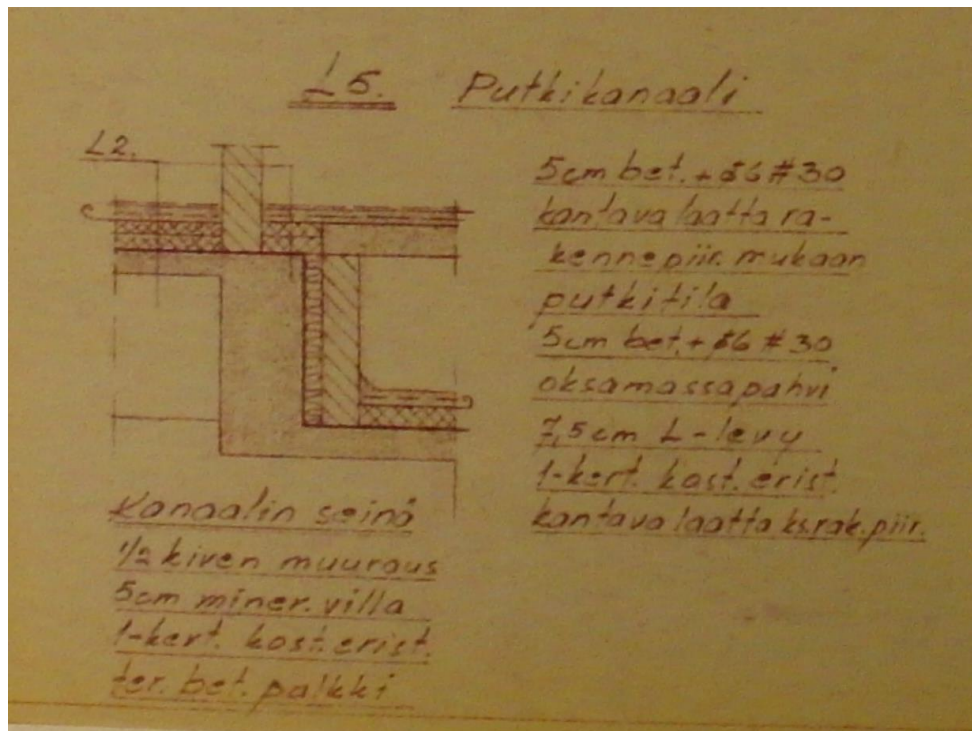 L5. Putkikanaali
L2.
5cm bet. + ø6 # 30
kantava laatta ra-
kennepiir. mukaan
putkitila
5cm bet. + ø6 # 30
oksamassapahvi
7,5cm L-levy
1-kert. kost. erist.
kantava laatta ks.rak.piir.
Kanaalin seinä
1/2 kiven muuraus
5cm miner. villa
1-kert. kost. erist.
ter. bet. palkki